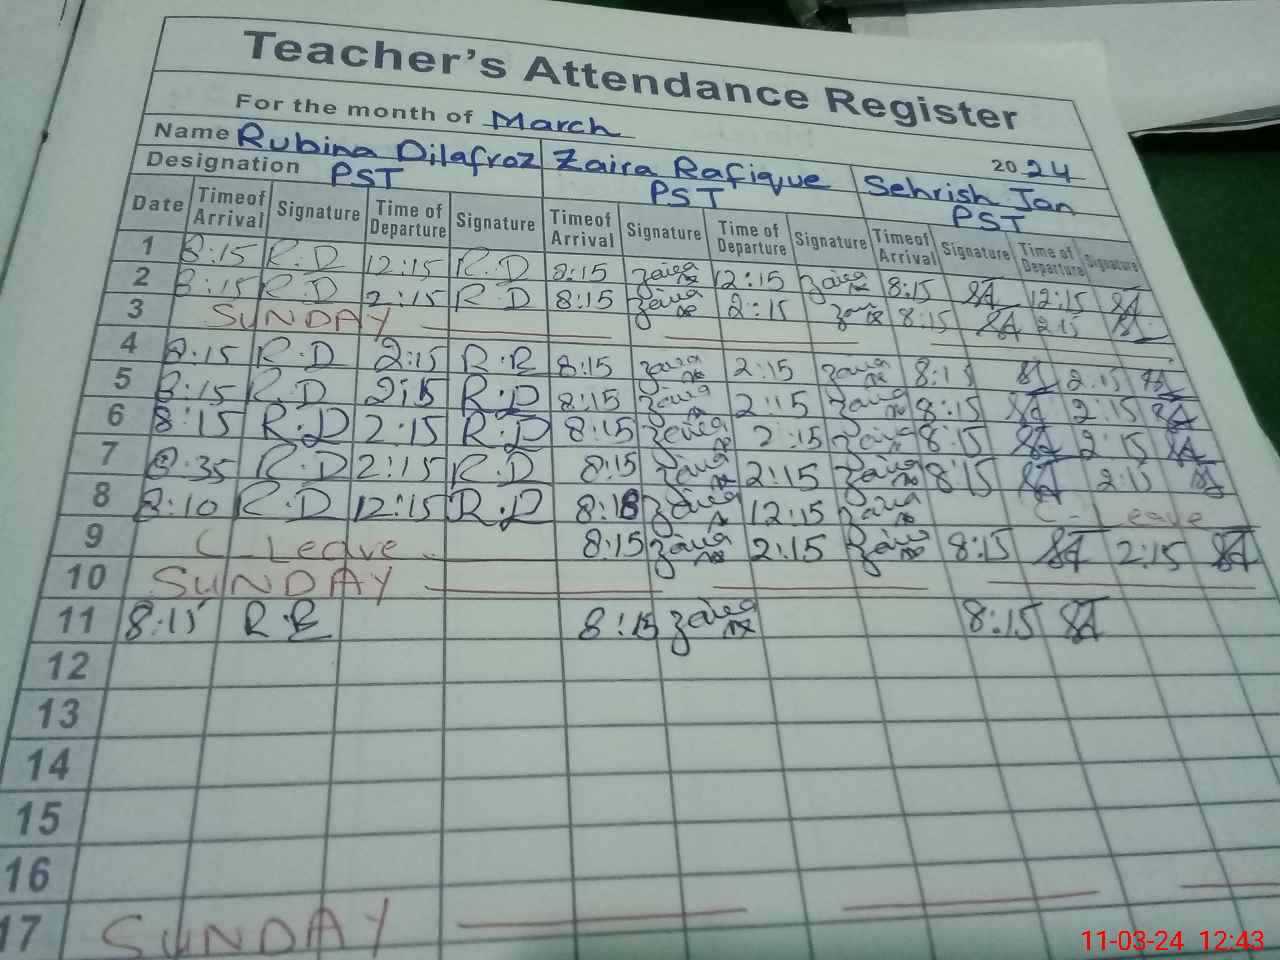 Teacher's Attendance Register
For the month of March 2024
Name Rubina Dilafroz Zaira Rafique Sehrish Jan
Designation PST PST PST
Date Timeof Arrival Signature Time of Departure Signature Timeof Arrival Signature Time of Departure Signature Timeof Arrival Signature Time of Departure Signature
1 8:15 R.D 12:15 R.D 8:15 Zaira 12:15 Zaira 8:15 12:15
2 8:15 R.D 2:15 R.D 8:15 Zaira 2:15 Zaira 8:15 2:15
3 SUNDAY
4 8:15 R.D 2:15 R.R 8:15 Zaira 2:15 Zaira 8:15 2:15
5 8:15 R.D 2:15 R.D 8:15 Zaira 2:15 Zaira 8:15 2:15
6 8:15 R.D 2:15 R.D 8:15 Zaira 2:15 Zaira 8:15 2:15
7 8:35 R.D 2:15 R.D 8:15 Zaira 2:15 Zaira 8:15 2:15
8 8:10 R.D 12:15 R.D Zaira 12:15 Zaira C- Leave
9 C- Leave 8:15 Zaira 2:15 Zaira 8:15 2:15
10 SUNDAY
11 8:15 8:15 Zaira 8:15
12
13
14
15
16
17 SUNDAY
11-03-24 12:43